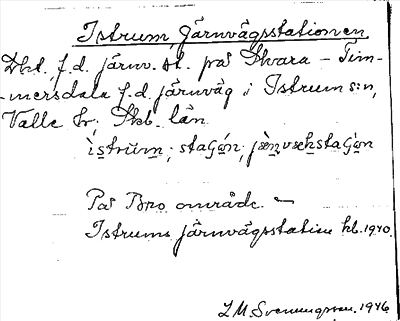 Istrum, Järnvägsstationen
Dbd, f.d. järnv. st. på Skara – Tim-
-mersdala f.d. järnväg i Istrum s:n,
Valle hr, Skb. län.
ìstrùm; staʃón; jæ̀nvækstaʃòn
På Bro område. —
Istrums järnvägsstation kb. 1940.
L M Svenungsson. 1946